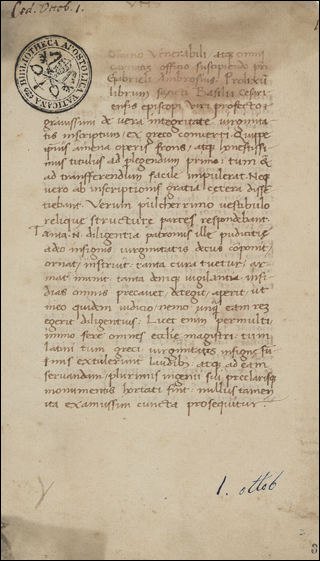 Cod. Ottob. 1.
BIBLIOTHECA APOSTOLICA VATICANA
Divino Venerabili atq; omni
officio suscipiendo pri
Gabrieli Ambrosius. Prolixū
librum sancti Basilii Cesari
ensis episcopi viri profecto
gravissimi de vera integritate virginita
tis inscriptum ex greco converti. Quippe
ipsius amena operis frons, atq; honestissi
mus titulus ad legendum primo: tum &
ad transferendum facile impulerat. Neq
vero ab inscriptionis gratia cetera disse
tiebant. Verum pulcherrimo vestibulo
relique structure partes respondebant.
Tanta .N. diligentia patronus ille pudicitie
adeo insignis virginitatis decus cōponit,
ornat, instruit. tanta cura tuetur, ar
mat munit. tanta deniq; vigilantia insi
dias omnis precavet, detegit, aperit, ut
meo quidem iudicio, nemo unq̄ eam rez
egerit diligentius. Licet enim permulti
immo fere omnes ecclie magistri tum
latini tum greci virginitatis insigne su
mis extulerint laudibus, atq; ad eam
servandam, plurimis ingenii sui preclarisq;
monumentis hortati sint. nullus tamen
ita examussim cuncta prosequitur.
1. ottob